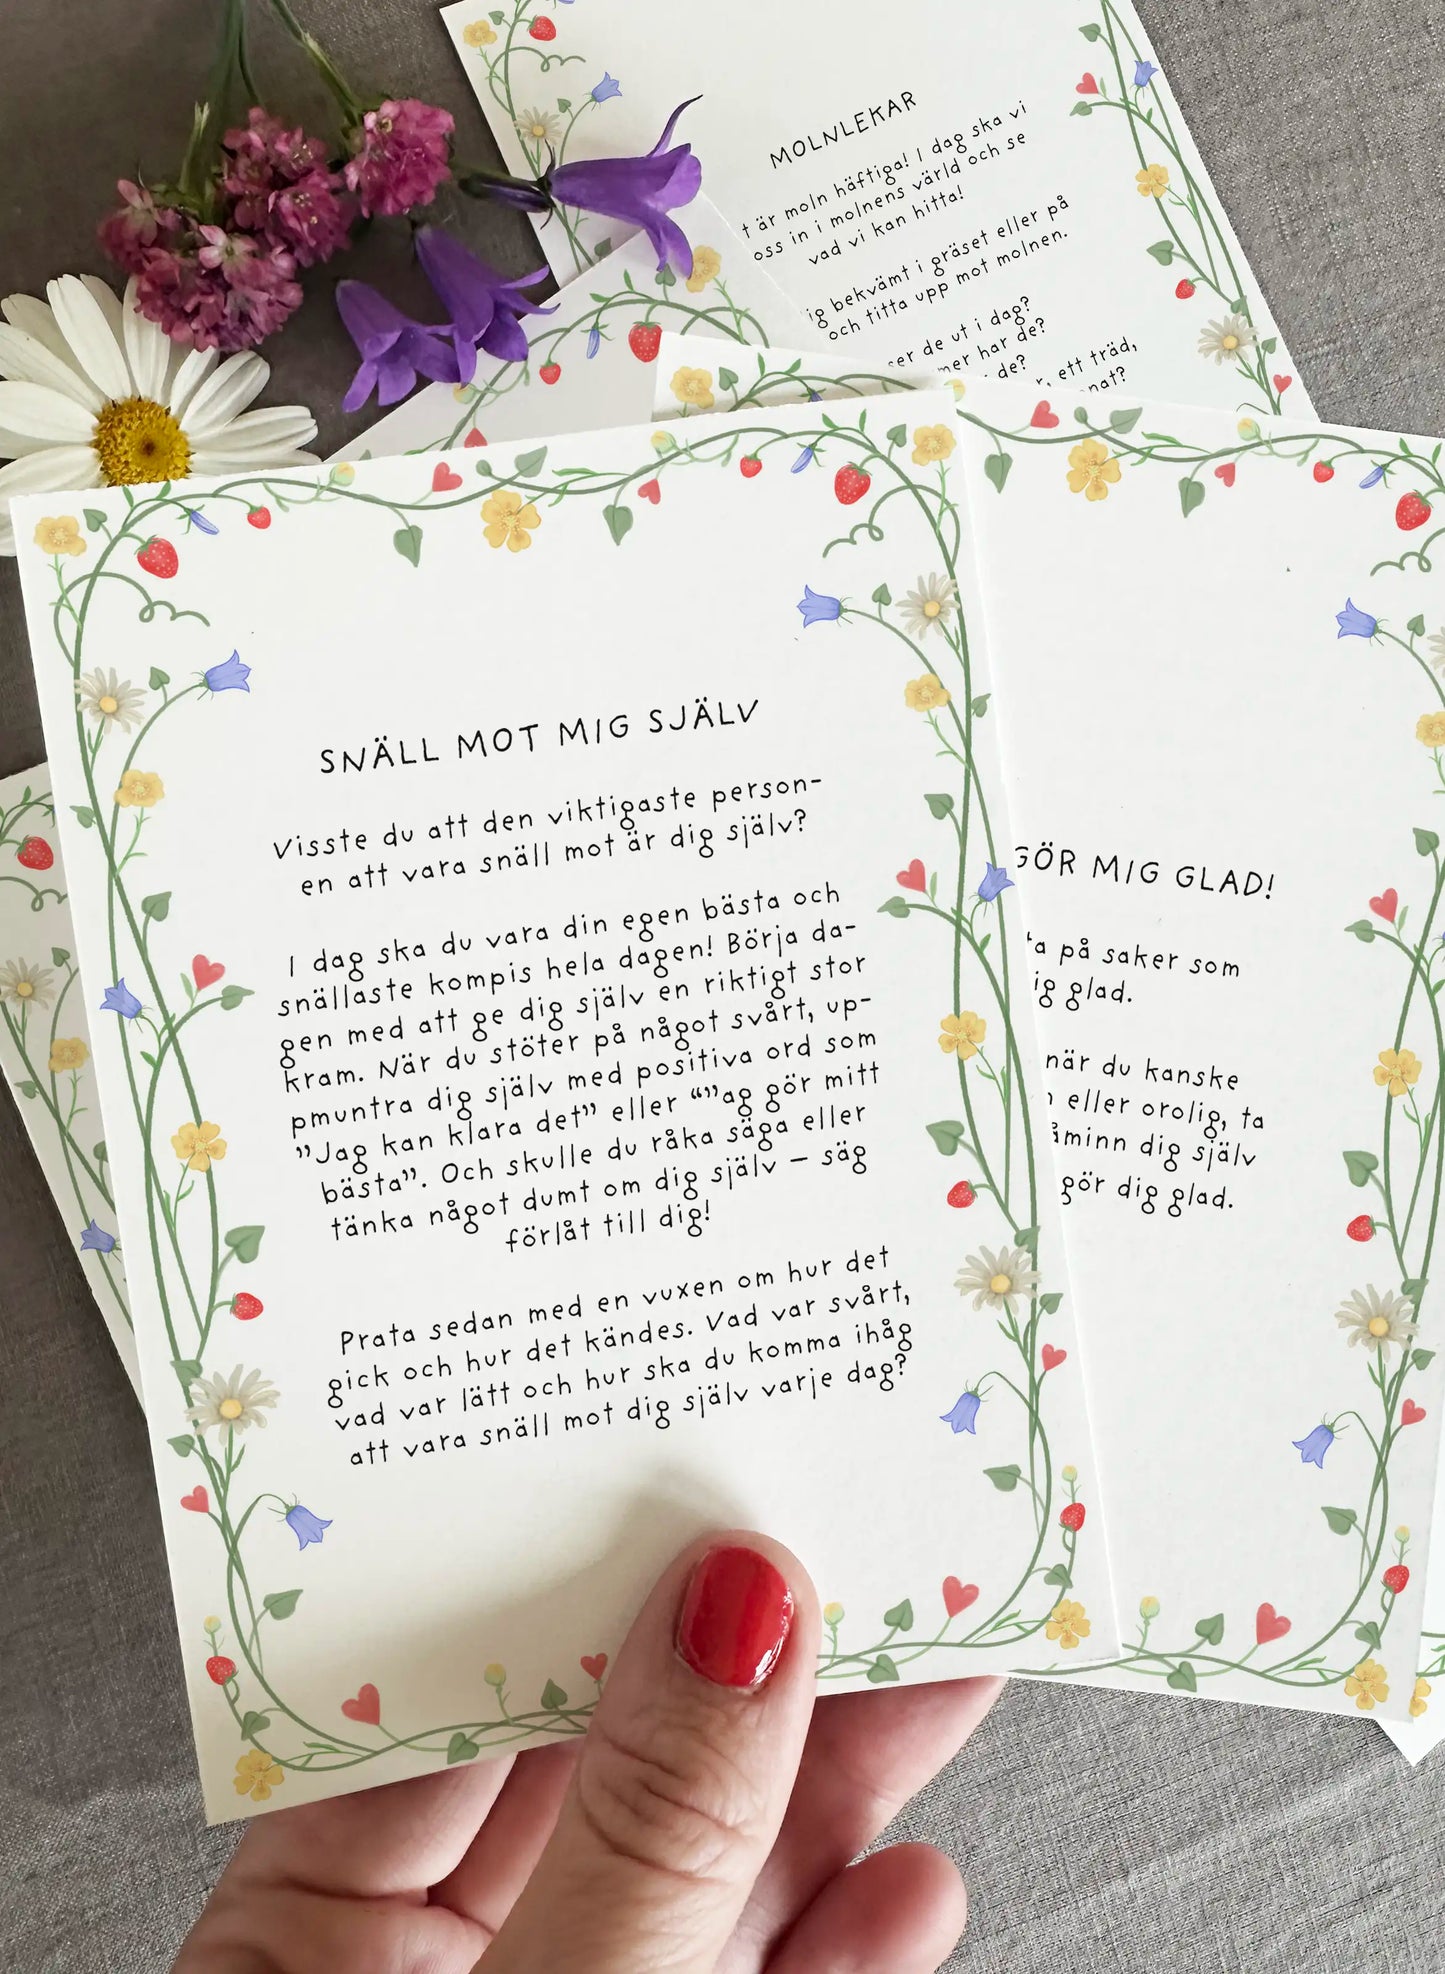 MOLNLEKAR
t är moln häftiga! I dag ska vi
oss in i molnens värld och se
vad vi kan hitta!
ig bekvämt i gräset eller på
och titta upp mot molnen.
ser de ut i dag?
mer har de?
de?
ett träd,
nat?
SNÄLL MOT MIG SJÄLV
Visste du att den viktigaste person-
en att vara snäll mot är dig själv?
I dag ska du vara din egen bästa och
snällaste kompis hela dagen! Börja da-
gen med att ge dig själv en riktigt stor
kram. När du stöter på något svårt, up-
pmuntra dig själv med positiva ord som
”Jag kan klara det” eller “”ag gör mitt
bästa”. Och skulle du råka säga eller
tänka något dumt om dig själv – säg
förlåt till dig!
Prata sedan med en vuxen om hur det
gick och hur det kändes. Vad var svårt,
vad var lätt och hur ska du komma ihåg
att vara snäll mot dig själv varje dag?
GÖR MIG GLAD!
ta på saker som
ig glad.
när du kanske
eller orolig, ta
åminn dig själv
gör dig glad.